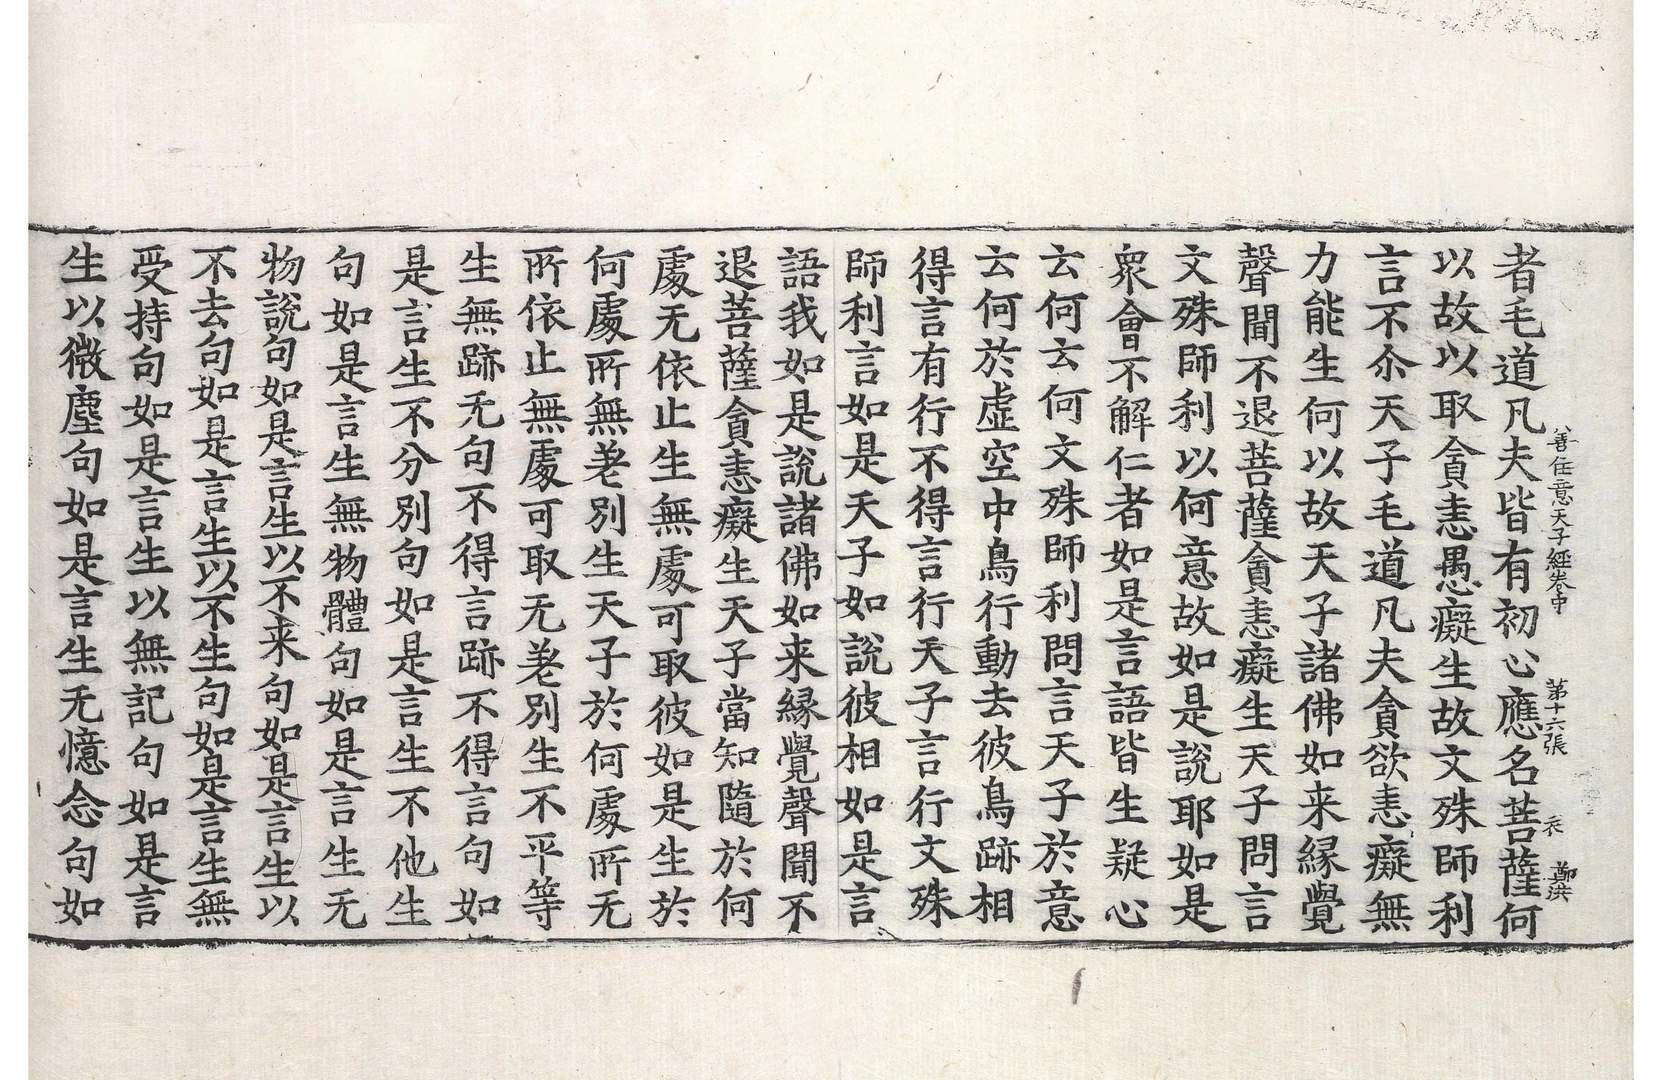 善住意天子經卷中 第十六張 衣 鄭洪
者毛道凡夫皆有初心應名菩薩何
以故以取貪恚愚癡生故文殊師利
言不尒天子毛道凡夫貪欲恚癡無
力能生何以故天子諸佛如来縁覺
聲聞不退菩薩貪恚癡生天子問言
文殊師利以何意故如是說耶如是
衆會不解仁者如是言語皆生疑心
云何云何文殊師利問言天子於意
云何於虛空中鳥行動去彼鳥跡相
得言有行不得言行天子言行文殊
師利言如是天子如說彼相如是言
語我如是說諸佛如来縁覺聲聞不
退菩薩貪恚癡生天子當知隨於何
處无依止生無處可取彼如是生於
何處所無差別生天子於何處所无
所依止無處可取无差別生不平等
生無跡无句不得言跡不得言句如
是言生不分別句如是言生不他生
句如是言生無物體句如是言生无
物說句如是言生以不来句如是言生以
不去句如是言生以不生句如是言生無
受持句如是言生以無記句如是言
生以微塵句如是言生无憶念句如